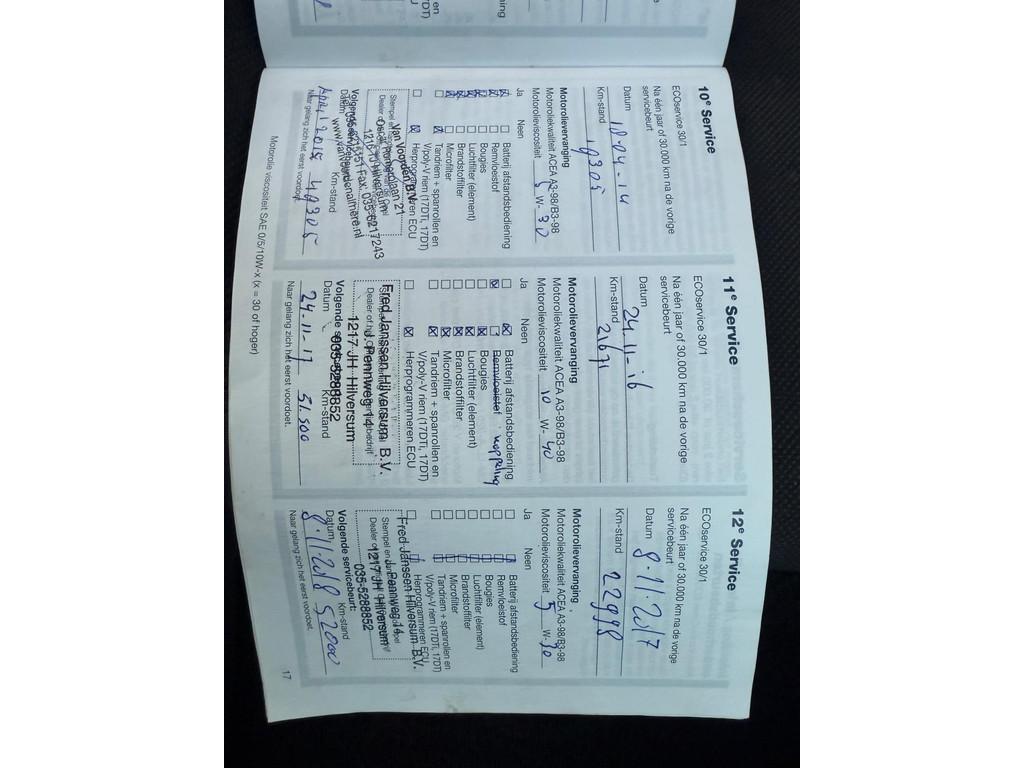 10e Service
ECOservice 30/1
Na één jaar of 30.000 km na de vorige
servicebeurt
Datum 18-04-14
Km-stand 19305
Motorolievervanging
Motoroliekwaliteit ACEA A3-98/B3-98
Motorolieviscositeit 5 W- 30
Ja Neen
Batterij afstandsbediening
Remvloeistof
Bougies
Luchtfilter (element)
Brandstoffilter
Microfilter
Tandriem + spanrollen en
V/poly-V riem (17DTi, 17DT)
Herprogrammeren ECU
Stempel en
Dealer of
Van Voorden B.V.
laan 21
Hilversum
Fax: 035-6217243
Volgende
Datum Km-stand
April 2015 49305
Naar gelang zich het eerst voordoet.
11e Service
ECOservice 30/1
Na één jaar of 30.000 km na de vorige
servicebeurt
Datum 24-11-16
Km-stand 21671
Motorolievervanging
Motoroliekwaliteit ACEA A3-98/B3-98
Motorolieviscositeit 10 W- 40
Ja Neen
Batterij afstandsbediening
Remvloeistof koppeling
Bougies
Luchtfilter (element)
Brandstoffilter
Microfilter
Tandriem + spanrollen en
V/poly-V riem (17DTi, 17DT)
Herprogrammeren ECU
Fred Janssen Hilversum B.V.
J. Pennweg 14
1217 JH Hilversum
035-5288852
Volgende
Datum Km-stand
24-11-17 51.500
Naar gelang zich het eerst voordoet.
12e Service
ECOservice 30/1
Na één jaar of 30.000 km na de vorige
servicebeurt
Datum 8-11-2017
Km-stand 22998
Motorolievervanging
Motoroliekwaliteit ACEA A3-98/B3-98
Motorolieviscositeit 5 W- 30
Ja Neen
Batterij afstandsbediening
Remvloeistof
Bougies
Luchtfilter (element)
Brandstoffilter
Microfilter
Tandriem + spanrollen en
V/poly-V riem (17DTi, 17DT)
Herprogrammeren ECU
Fred Janssen Hilversum B.V.
Stempel en
J. Pennweg 14
Dealer of
1217 JH Hilversum
035-5288852
Volgende servicebeurt:
Datum Km-stand
8-11-2018 52000
Naar gelang zich het eerst voordoet.
Motorolie viscositeit SAE 0/5/10W-x (x = 30 of hoger)
17